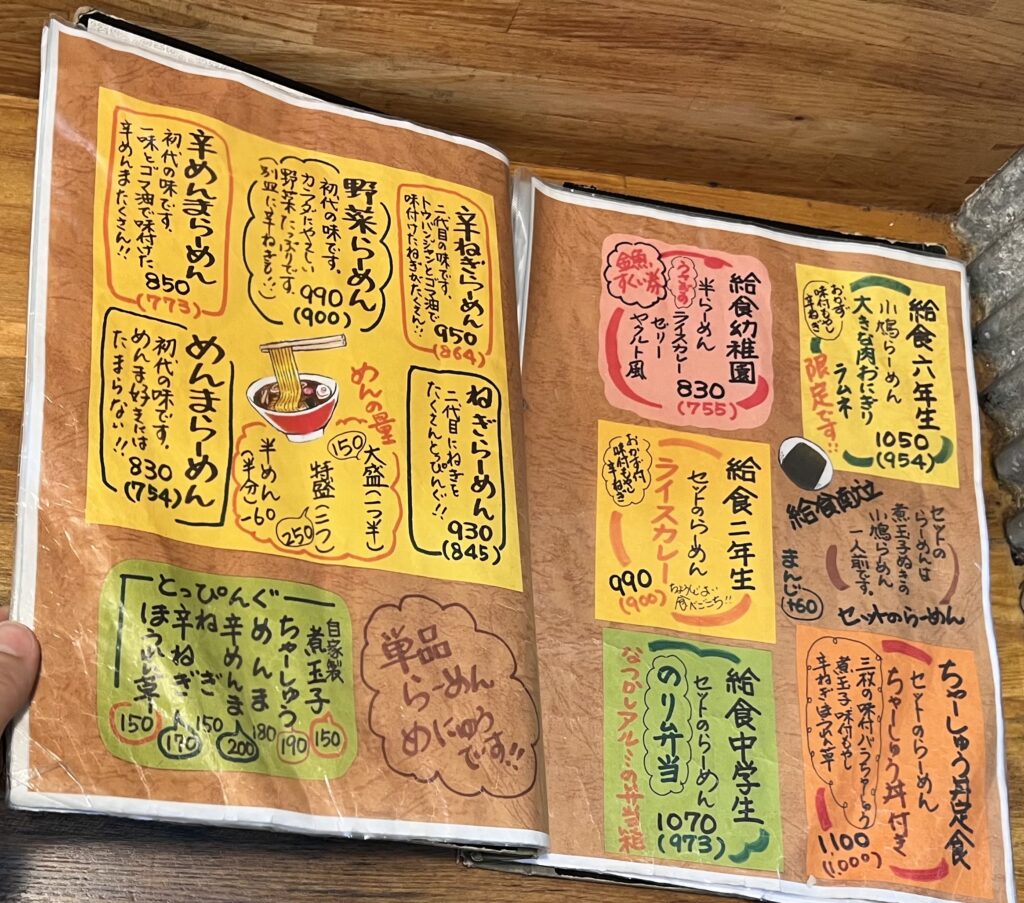 辛ねぎらーめん
二代目の味です。
トウバンジャンとゴマ油で
味付けたねぎがたくさん!!
950
(864)
野菜らーめん
初代の味です。
カラダにやさしい
野菜たっぷりです。
(別皿に辛ねぎも…)
990
(900)
辛めんまらーめん
初代の味です。
一味とゴマ油で味付けた
辛めんまたくさん!!
850
(773)
ねぎらーめん
二代目にねぎを
たくさんとっぴんぐ!!
930
(845)
めんの量
大盛(一つ半)
150
特盛(二つ)
250
半めん
(半分)
-60
めんまらーめん
初代の味です。
めんま好きには
たまらない!!
830
(754)
とっぴんぐ
自家製
煮玉子
150
ちゃーしゅう
190
めんま
180
辛めんま
200
ねぎ
150
辛ねぎ
170
ほうれん草
150
単品
らーめん
めにゅう
です!!
給食六年生
小鳩らーめん
大きな肉おにぎり
ラムネ
限定です!!
おかず
味付もやし
辛ねぎ
1050
(954)
給食幼稚園
半らーめん
ライスカレー
ゼリー
ヤクルト風
金魚すくい券
830
(755)
給食二年生
セットのらーめん
ライスカレー
おかず付
味付もやし
辛ねぎ
990
(900)
ちょめじょい
食べごこち!!
セットの
らーめんは
煮玉子ぬきの
小鳩らーめん
一人前です。
セットのらーめん
まんじ
+60
給食中学生
セットのらーめん
のり弁当
なつかしアルミの弁当箱
1070
(973)
ちゃーしゅう丼定食
セットのらーめん
ちゃーしゅう丼付き
三枚の味付バラちゃーしゅう
煮玉子味付もやし
辛ねぎほうれん草
1100
(1000)